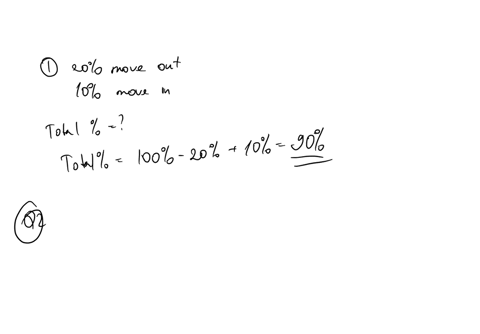 ① 20% move out
10% move in
Total % = ?
Total % = 100% - 20% + 10% = 90%
Q2